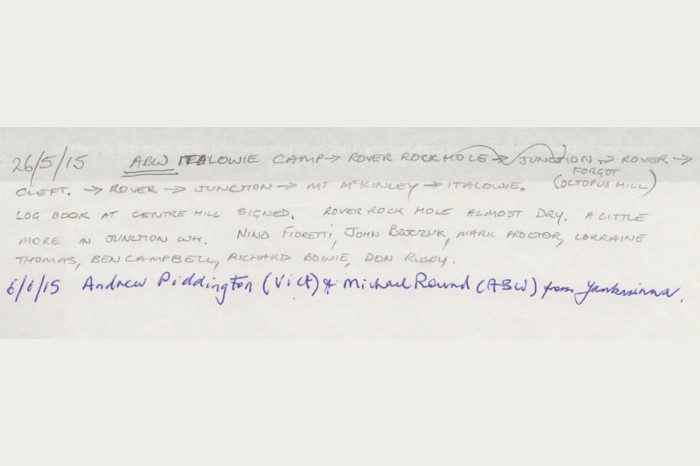 26/5/15 ABW ITALOWIE CAMP → ROVER ROCKHOLE → JUNCTION → ROVER →
FORGOT
CLEFT. → ROVER → JUNCTION → MT MCKINLEY → ITALOWIE. (OCTOPUS HILL)
LOG BOOK AT CENTRE HILL SIGNED. ROVER ROCK HOLE ALMOST DRY. A LITTLE
MORE IN JUNCTION WH. NINO FIORETTI, JOHN MARK PROCTER, LORRAINE
THOMAS, BEN CAMPBELL, RICHARD BOWIE, DON
6/6/15 Andrew Piddington (Vict) & Michael Round (ABW) from